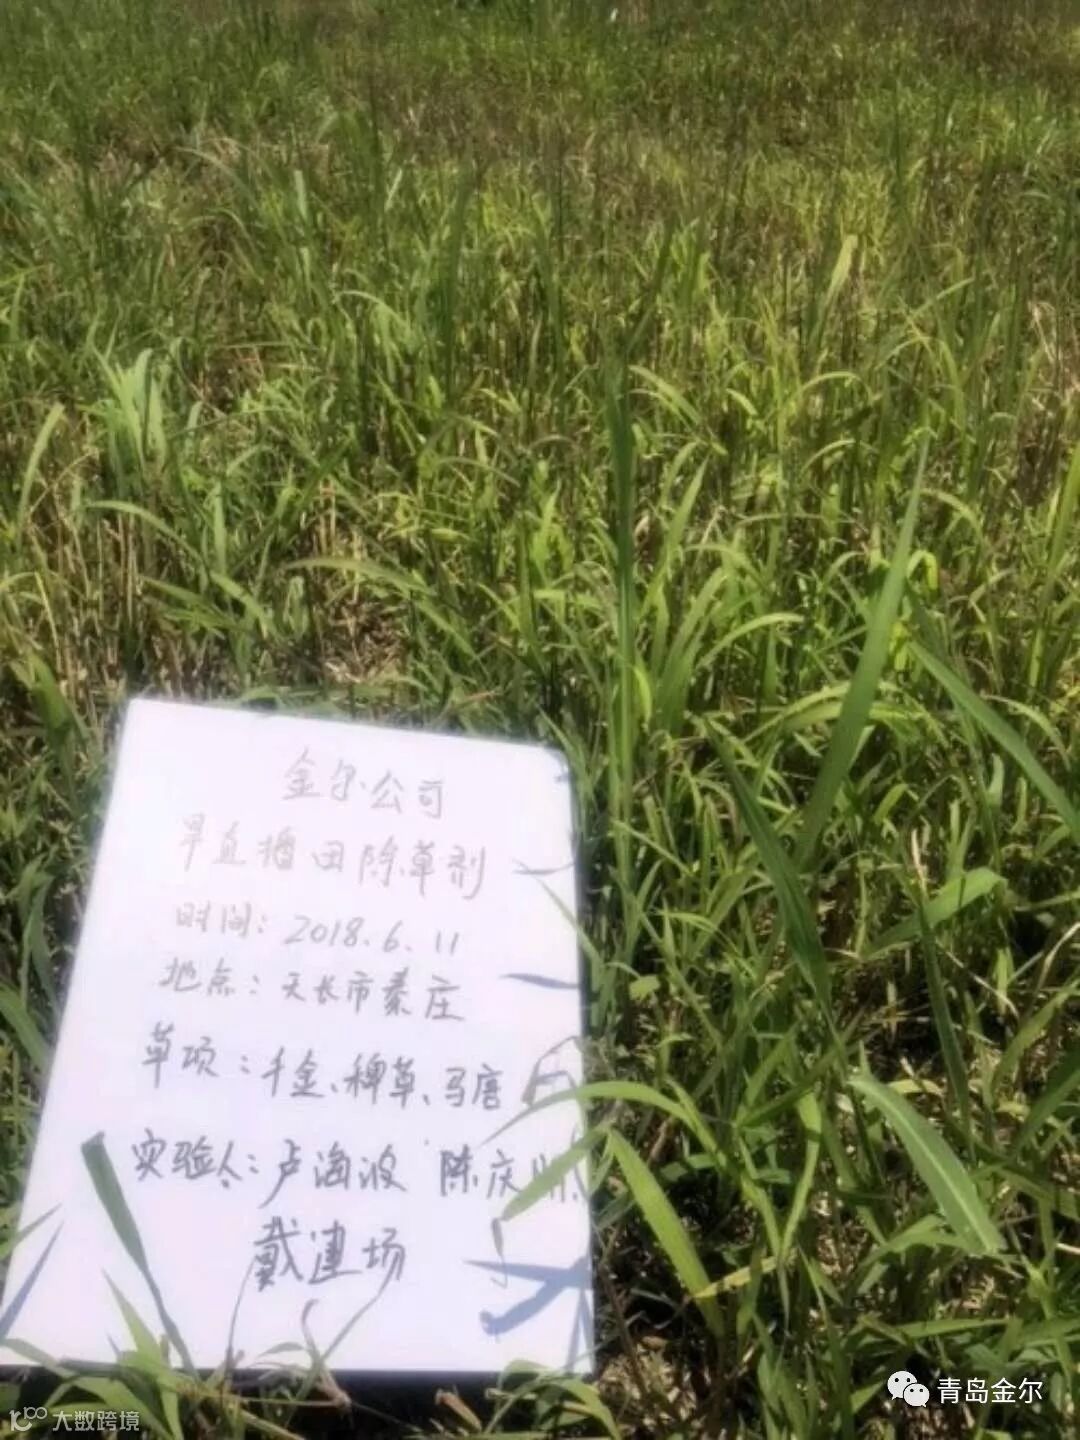 金尔公司
旱直播田除草剂
时间：2018.6.11
地点：天长市秦庄
草项：千金、稗草、马唐
实验人：卢海波 陈庆
戴建场
青岛金尔
大数跨境